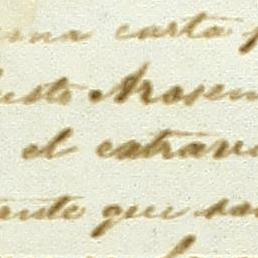 una carta p
usto Arosem
el extravi
ante que sa